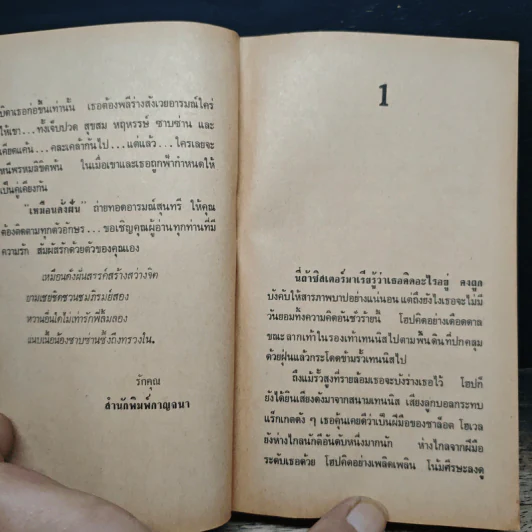 บิดาเธอก่อขึ้นเท่านั้น เธอต้องพลีร่างสังเวยอารมณ์ใคร่
ให้เขา...ทั้งเจ็บปวด สุขสม หฤหรรษ์ ซาบซ่าน และ
เคียดแค้น...คละเคล้ากันไป...แต่แล้ว...ใครเลยจะ
หนีพรหมลิขิตพ้น ในเมื่อเขาและเธอถูกฟ้ากำหนดให้
เป็นคู่เคียงกัน
"เหมือนดั่งฝัน" ถ่ายทอดอารมณ์สุนทรี ให้คุณ
ต้องติดตามทุกตัวอักษร...ขอเชิญคุณผู้อ่านทุกท่านที่มี
ความรัก สัมผัสรักด้วยตัวของคุณเอง
เหมือนดั่งฝันสรรค์สร้างสว่างจิต
ยามเชยชิดชวนชมภิรมย์สอง
หวานอื่นใดไม่เท่ารักที่ลิ้มลอง
แนบเนื้อน้องซาบซ่านซึ้งถึงทรวงใน.
รักคุณ
สำนักพิมพ์กาญจนา
1
นี่ถ้าซิสเตอร์มาเรียรู้ว่าเธอคิดอะไรอยู่ คงถูก
บังคับให้สารภาพบาปอย่างแน่นอน แต่ถึงยังไงเธอจะไม่มี
วันยอมทิ้งความคิดอันชั่วร้ายนี้ โฮปคิดอย่างเดือดดาล
ขณะลากเท้าในรองเท้าเทนนิสไปตามพื้นดินที่ปกคลุม
ด้วยฝุ่นแล้วกระโดดข้ามรั้วเทนนิสไป
ถึงแม้รั้วสูงที่รายล้อมเธอจะบังร่างเธอไว้ โฮปก็
ยังได้ยินเสียงดังมาจากสนามเทนนิส เสียงลูกบอลกระทบ
แร็กเกตดัง ๆ เธอคุ้นเคยดีว่าเป็นฝีมือของชาล็อต โฮเวล
ยังห่างไกลนักดีอันดับหนึ่งมากนัก ห่างไกลจากฝีมือ
ระดับเธอด้วย โฮปคิดอย่างเพลิดเพลิน โน้มศีรษะลงดู